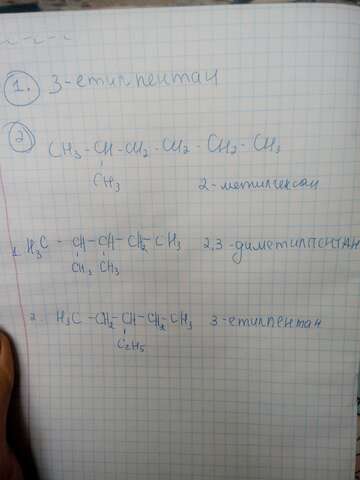 1. 3-етилпентан
2
CH3 - CH - CH2 - CH2 - CH2 - CH3
CH3
2-метилгексан
1. H3C - CH - CH - CH2 - CH3 2,3-диметилпентан
CH3 CH3
2. H3C - CH2 - CH - CH2 - CH3 3-етилпентан
C2H5